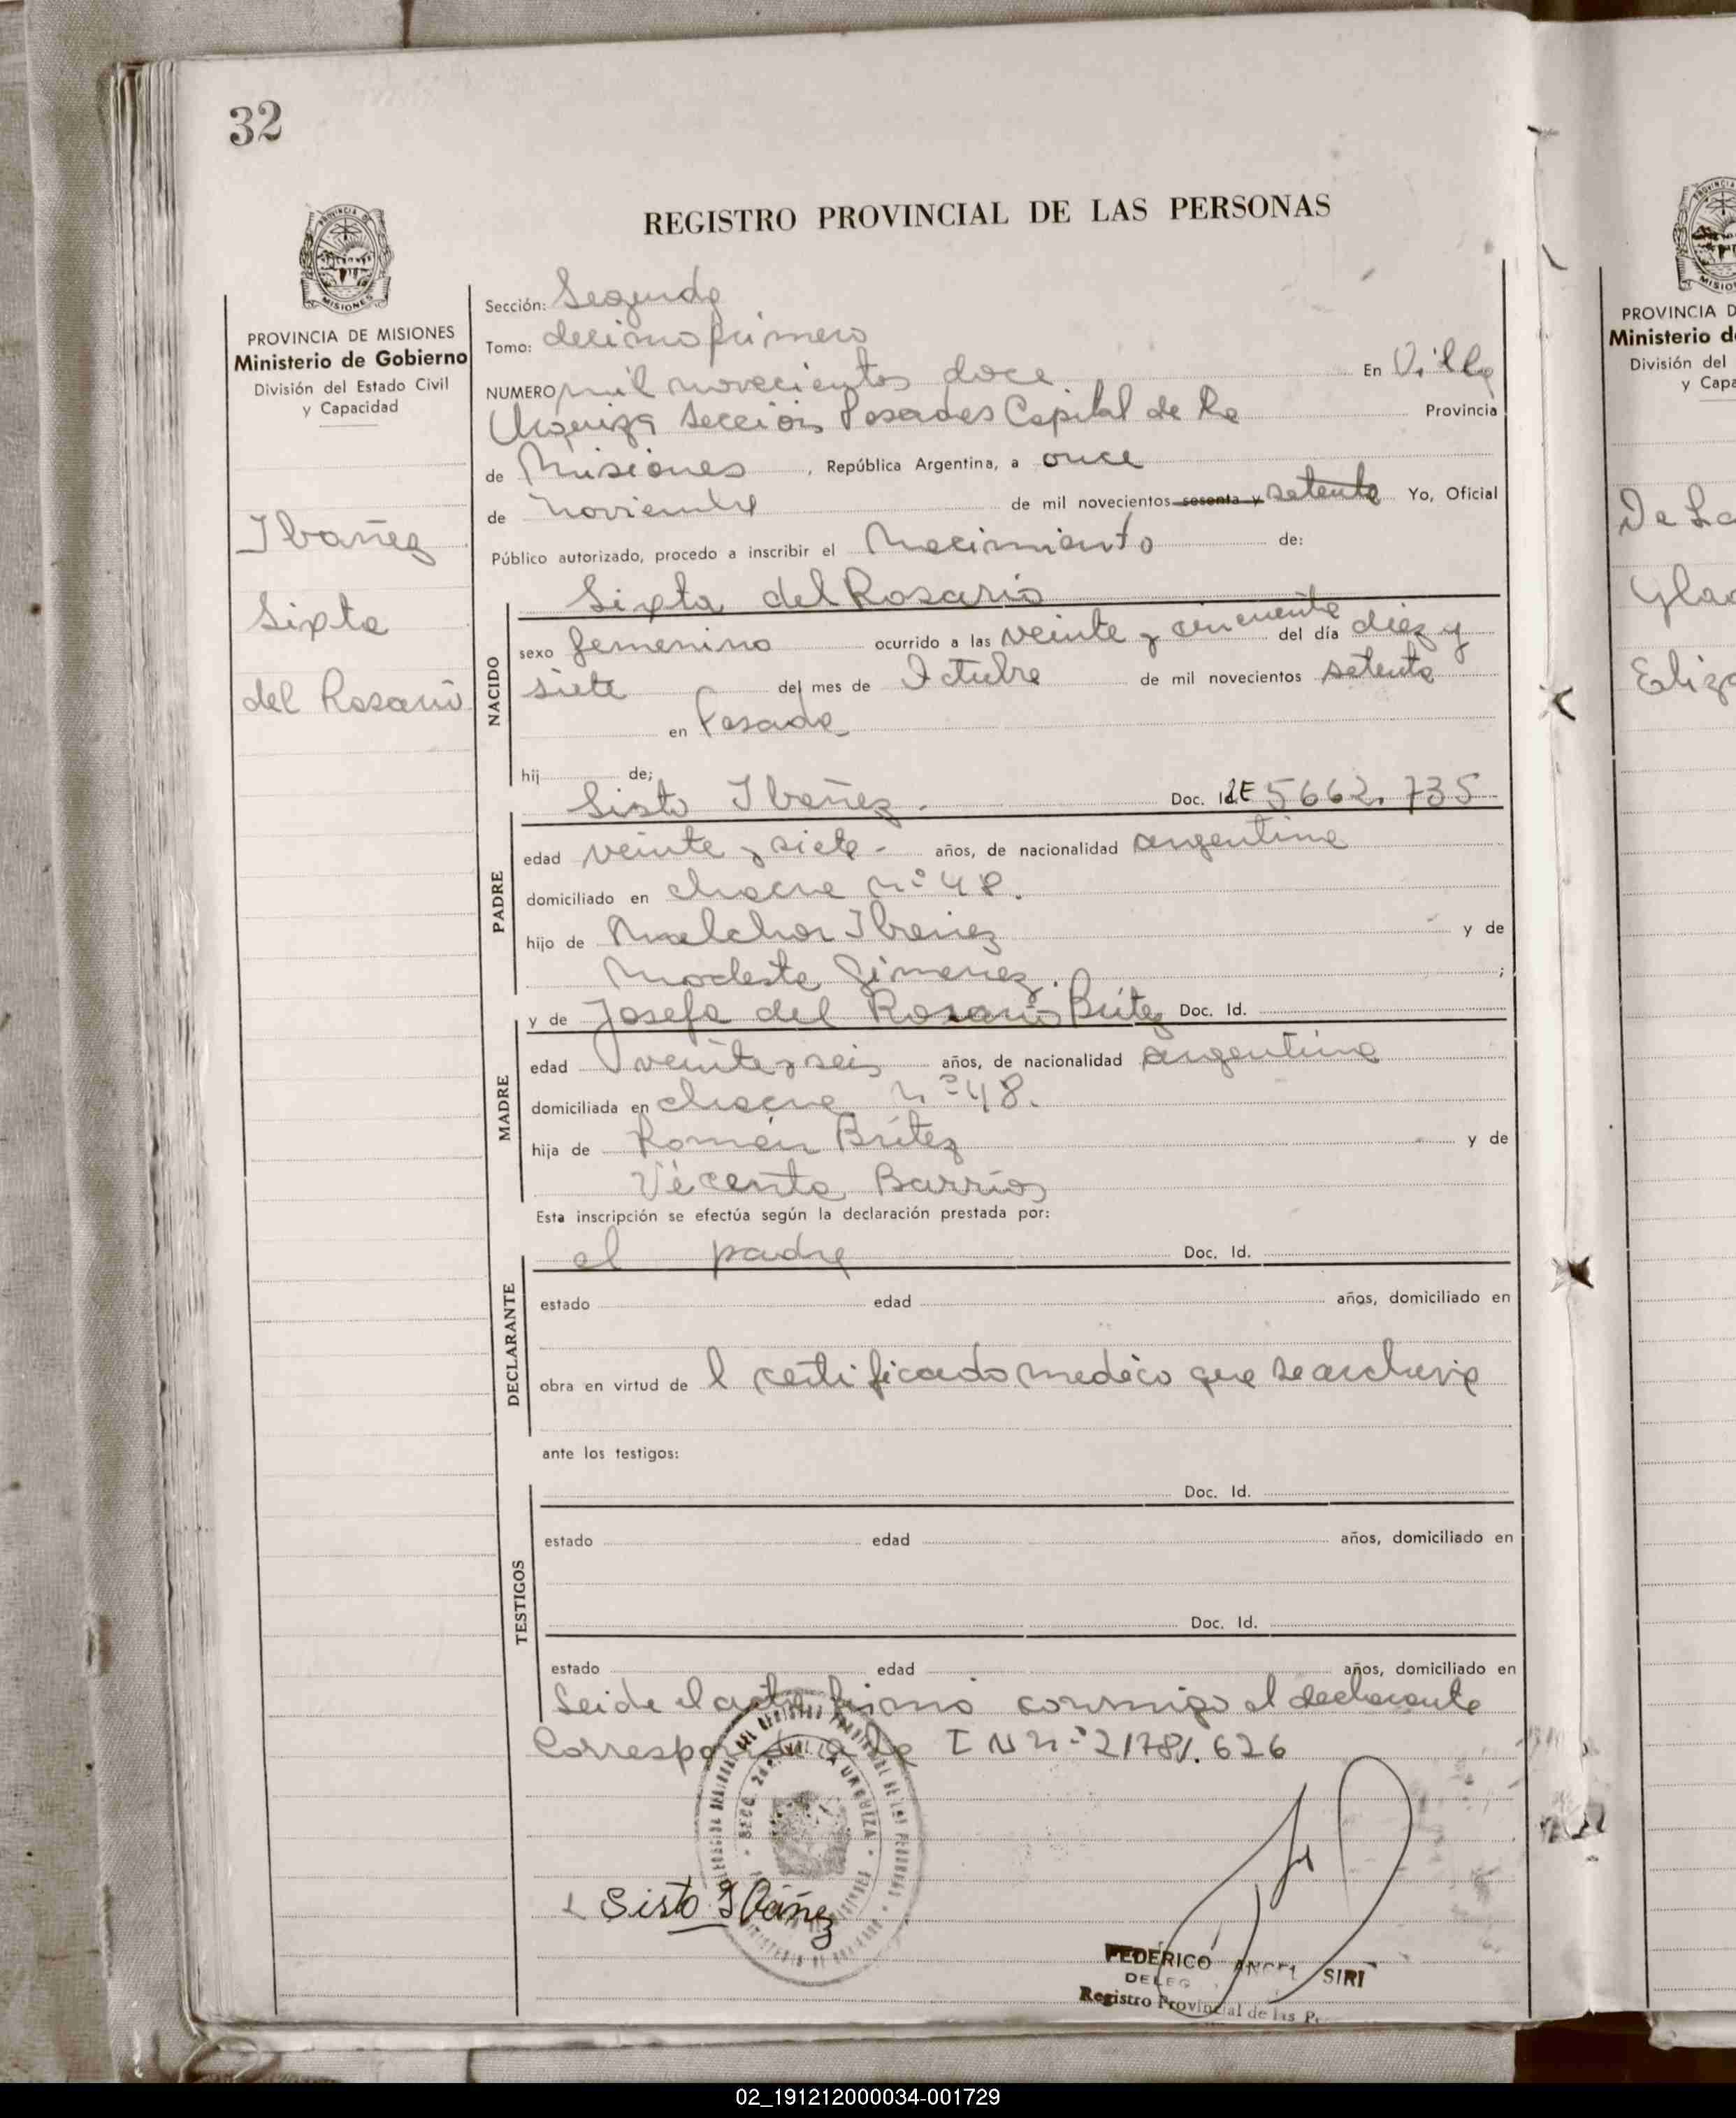 32
REGISTRO PROVINCIAL DE LAS PERSONAS
PROVINCIA DE MISIONES
Ministerio de Gobierno
División del Estado Civil
y Capacidad
Ibañez
Sixta
del Rosario
Sección: Segunda
Tomo: decimo primero
NUMERO mil novecientos doce En Villa
Urquiza Sección Posadas Capital de la Provincia
de Misiones, República Argentina, a once
de Noviembre de mil novecientos sesenta y setenta Yo, Oficial
Público autorizado, procedo a inscribir el Nacimiento de:
Sixta del Rosario
NACIDO
sexo femenino ocurrido a las veinte y cincuenta del día diez y
siete del mes de Octubre de mil novecientos setenta
en Posada
hij de;
Sisto Ibañez. Doc. Id. LE 5662.735
PADRE
edad veinte y siete- años, de nacionalidad argentina
domiciliado en chacra nº 48.
hijo de Melchor Ibañez y de
Modesta Gimenez. ;
y de Josefa del Rosario Britez Doc. Id.
MADRE
edad veinte y seis años, de nacionalidad argentina
domiciliada en chacra nº 48.
hija de Román Brítez y de
Vicenta Barrios
Esta inscripción se efectúa según la declaración prestada por:
el padre Doc. Id.
DECLARANTE
estado edad años, domiciliado en
obra en virtud de l certificado medico que se archiva
ante los testigos:
Doc. Id.
TESTIGOS
estado edad años, domiciliado en
Doc. Id.
estado edad años, domiciliado en
Leida el acta firmó conmigo el declarante
Corresponde I N nº 21781.626
SECC. 2a. VILLA URQUIZA
Sisto Ibáñez
FEDERICO ANGEL SIRI
DELEG
Registro Provincial de las P.
PROVINCIA D
Ministerio d
División del
y Capa
De La
Glad
Eliza
02_191212000034-001729